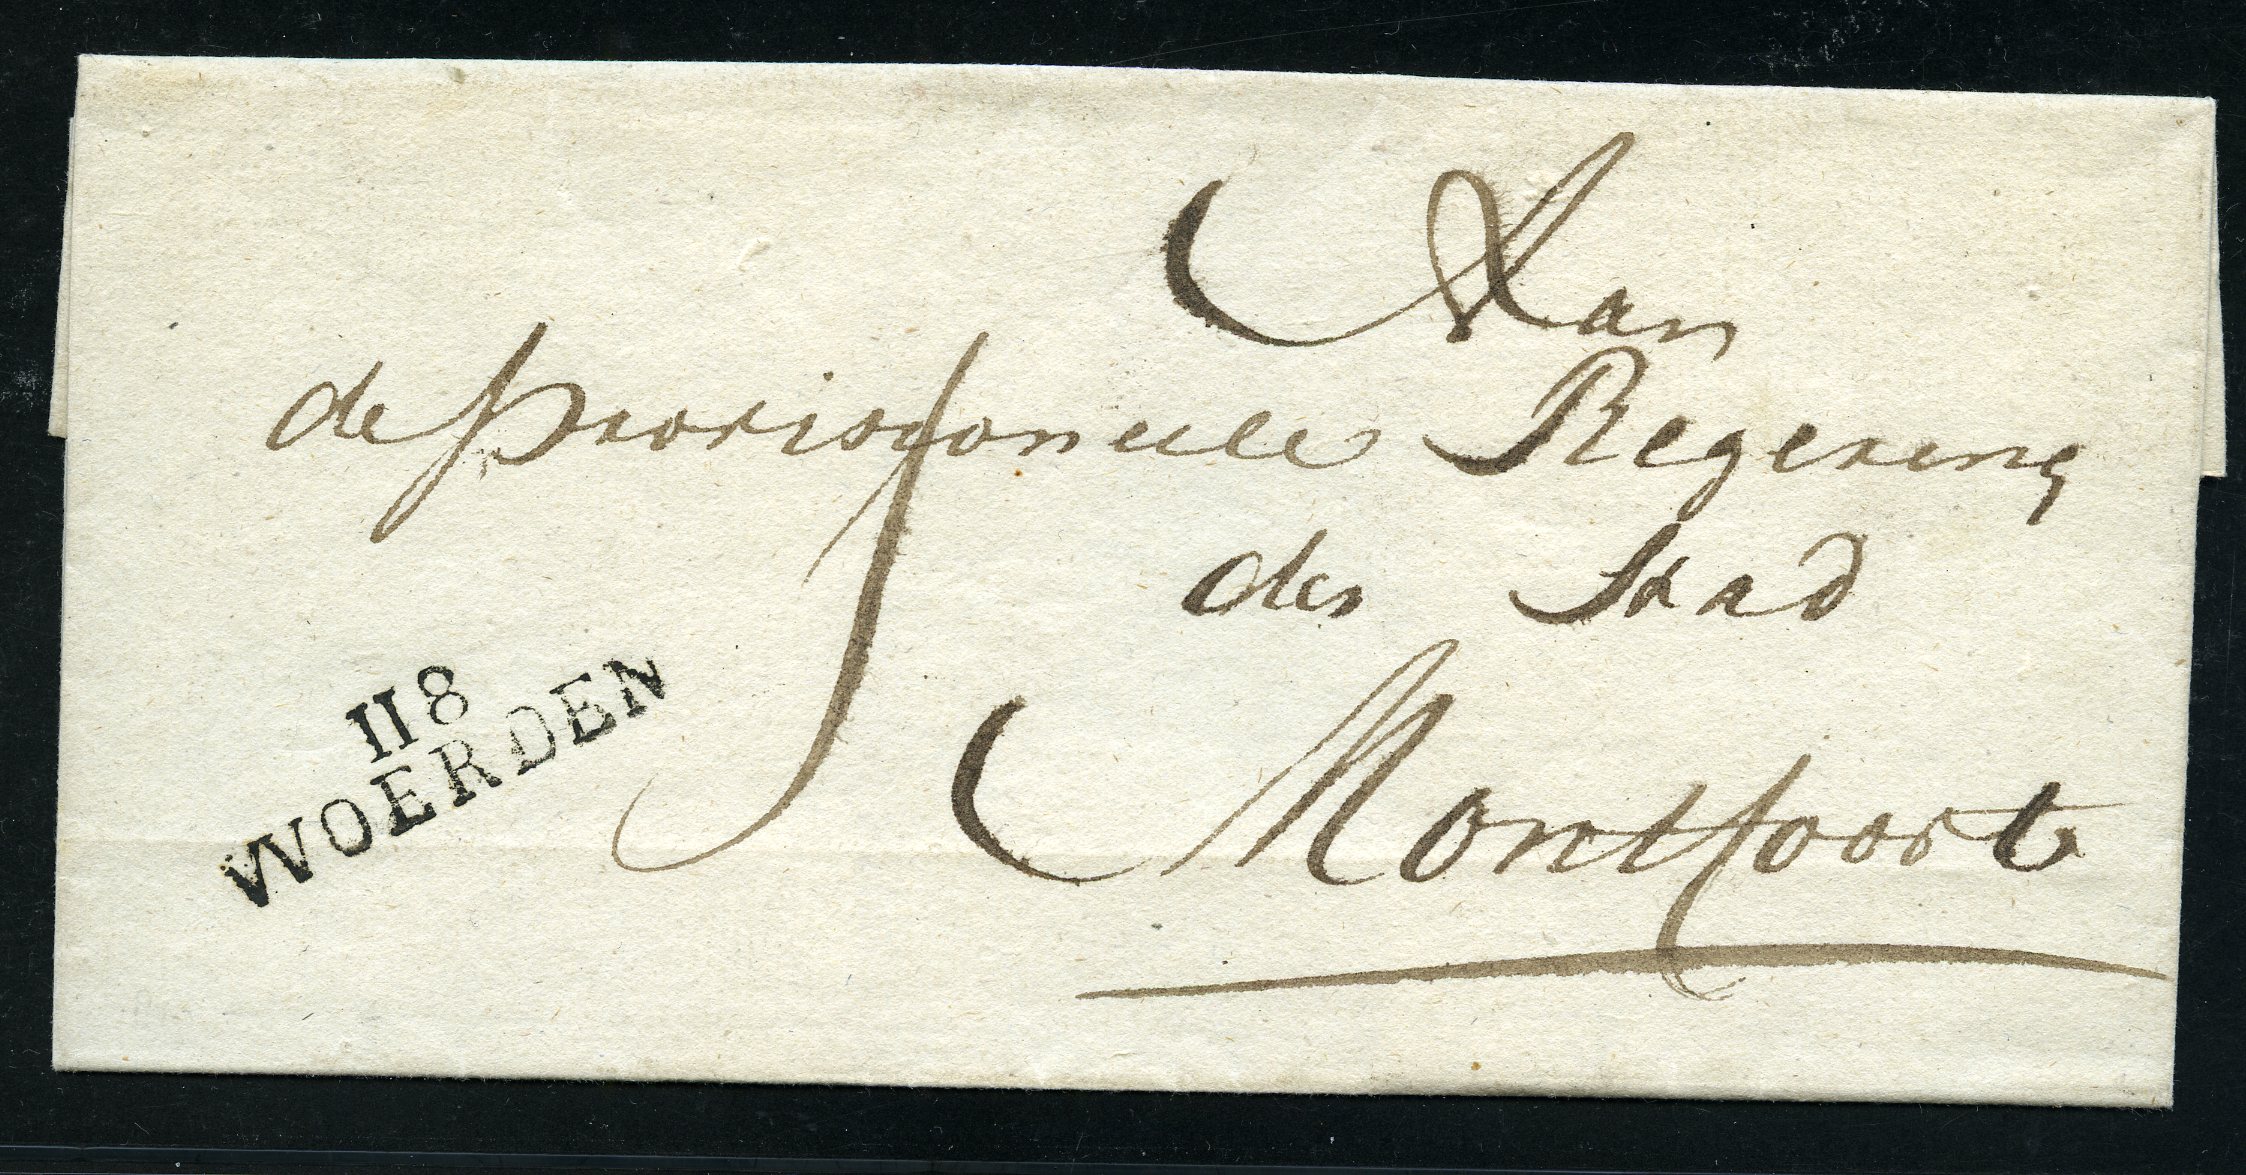 Aan
de provisioneele Regering
der Stad
Montfoort
118
WOERDEN